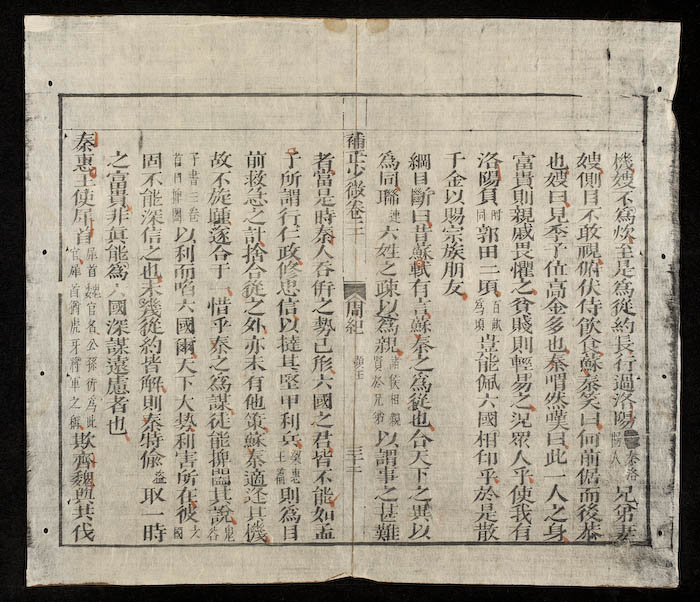 機嫂不為炊至是為從約長行過洛陽秦洛陽人兄弟妻
嫂側目不敢視俯伏侍飲食蘇秦笑曰何前倨而後恭
也嫂曰見季子位高金多也秦喟然嘆曰此一人之身
富貴則親戚畏懼之貧賤則輕易之况眾人乎使我有
洛陽負附同郭田二頃百畝為頃豈能佩六國相印乎於是散
千金以賜宗族朋友
綱目斷曰昔蘇軾有言蘇秦之為從也合天下之異以
為同聯連六姓之疎以為親諸侯相親賢於兄弟以謂事之甚難
補正少微卷二 周紀 顯王 三十
者當是時秦人吞併之勢已形六國之君皆不能如孟
子所謂行仁政修忠信以撻其堅甲利兵梁惠王篇則為目
前救急之計捨合從之外亦未有他策蘇秦適逐其機
故不旋踵遂合于一惜乎秦之為謀徒能捭闔其說鬼谷
子書三卷首曰捭闔以利而啗六國爾天下大勢利害所在彼六國
固不能深信之也未幾從約者解則秦特偷益取一時
之富貴非真能為六國深謀遠慮者也
秦惠王使犀首犀首魏官名公孫衍為此官犀首者虎牙將軍之稱欺齊魏與共伐